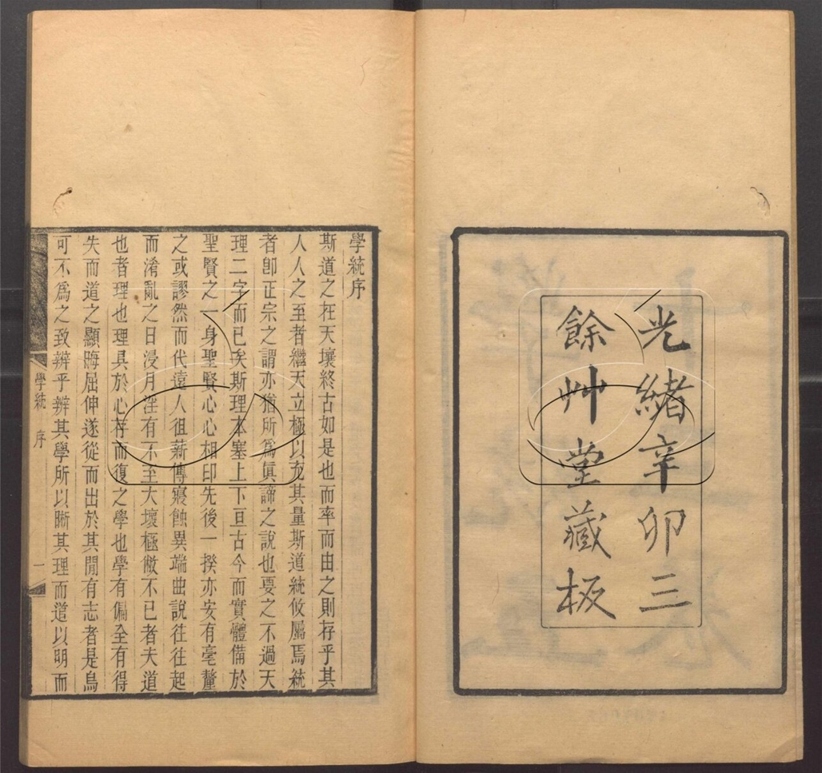 光緒辛卯三
餘艸堂藏板
學統序
斯道之在天壤終古如是也而率而由之則存乎其
人人之至者繼天立極以充其量斯道統攸屬焉統
者卽正宗之謂亦猶所為眞諦之說也要之不過天
理二字而已矣斯理本塞上下亘古今而實體備於
聖賢之一身聖賢心心相印先後一揆亦安有毫釐
之或謬然而代遠人徂薪傳寢蝕異端曲說往往起
而淆亂之日浸月淫有不至大壞極敝不已者夫道
也者理也理具於心存而復之學也學有偏全有得
失而道之顯晦屈伸遂從而出於其閒有志者是烏
可不為之致辨乎辨其學所以晰其理而道以明而
學統 序 一